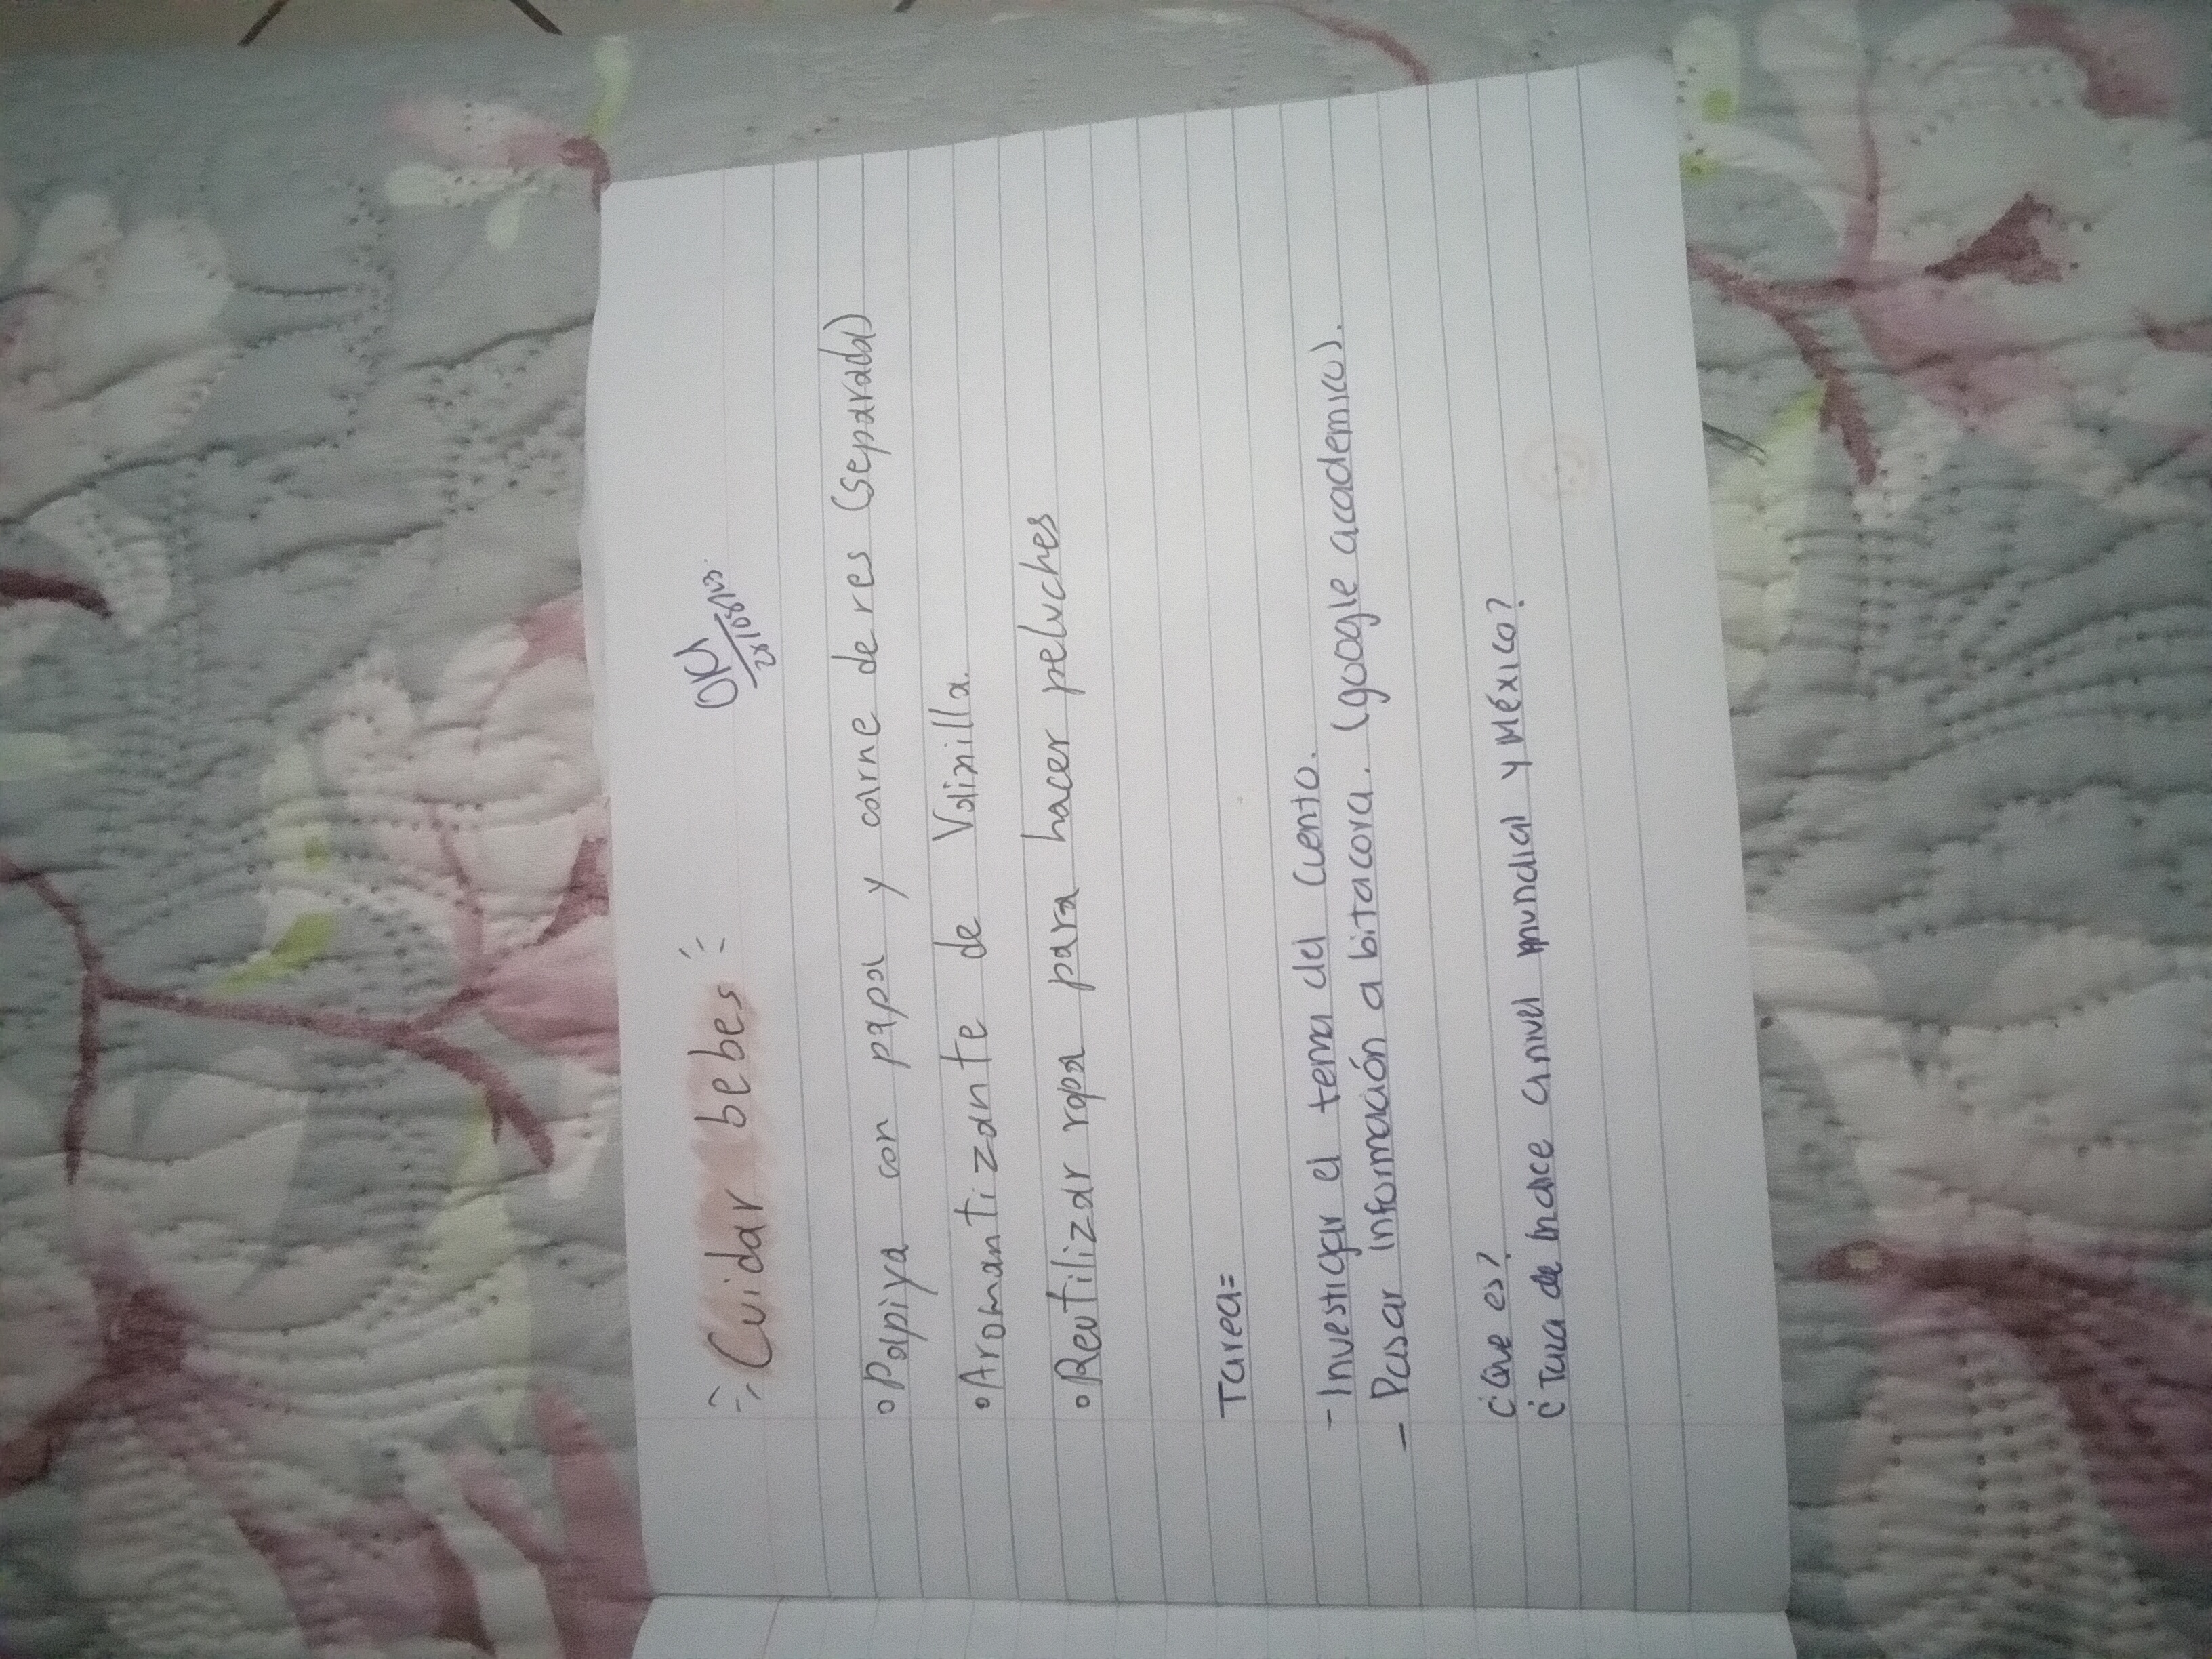 Cuidar bebes
OK
28/08/23.
° Papiya con papa y carne de res (separada)
° Aromantizante de Vainilla.
° Reutilizar ropa para hacer peluches
Tarea=
- Investigar el tema del cuento.
- Pasar información a bitacora. (google academico).
¿Que es?
¿Tasa de indice a nivel mundial y México?